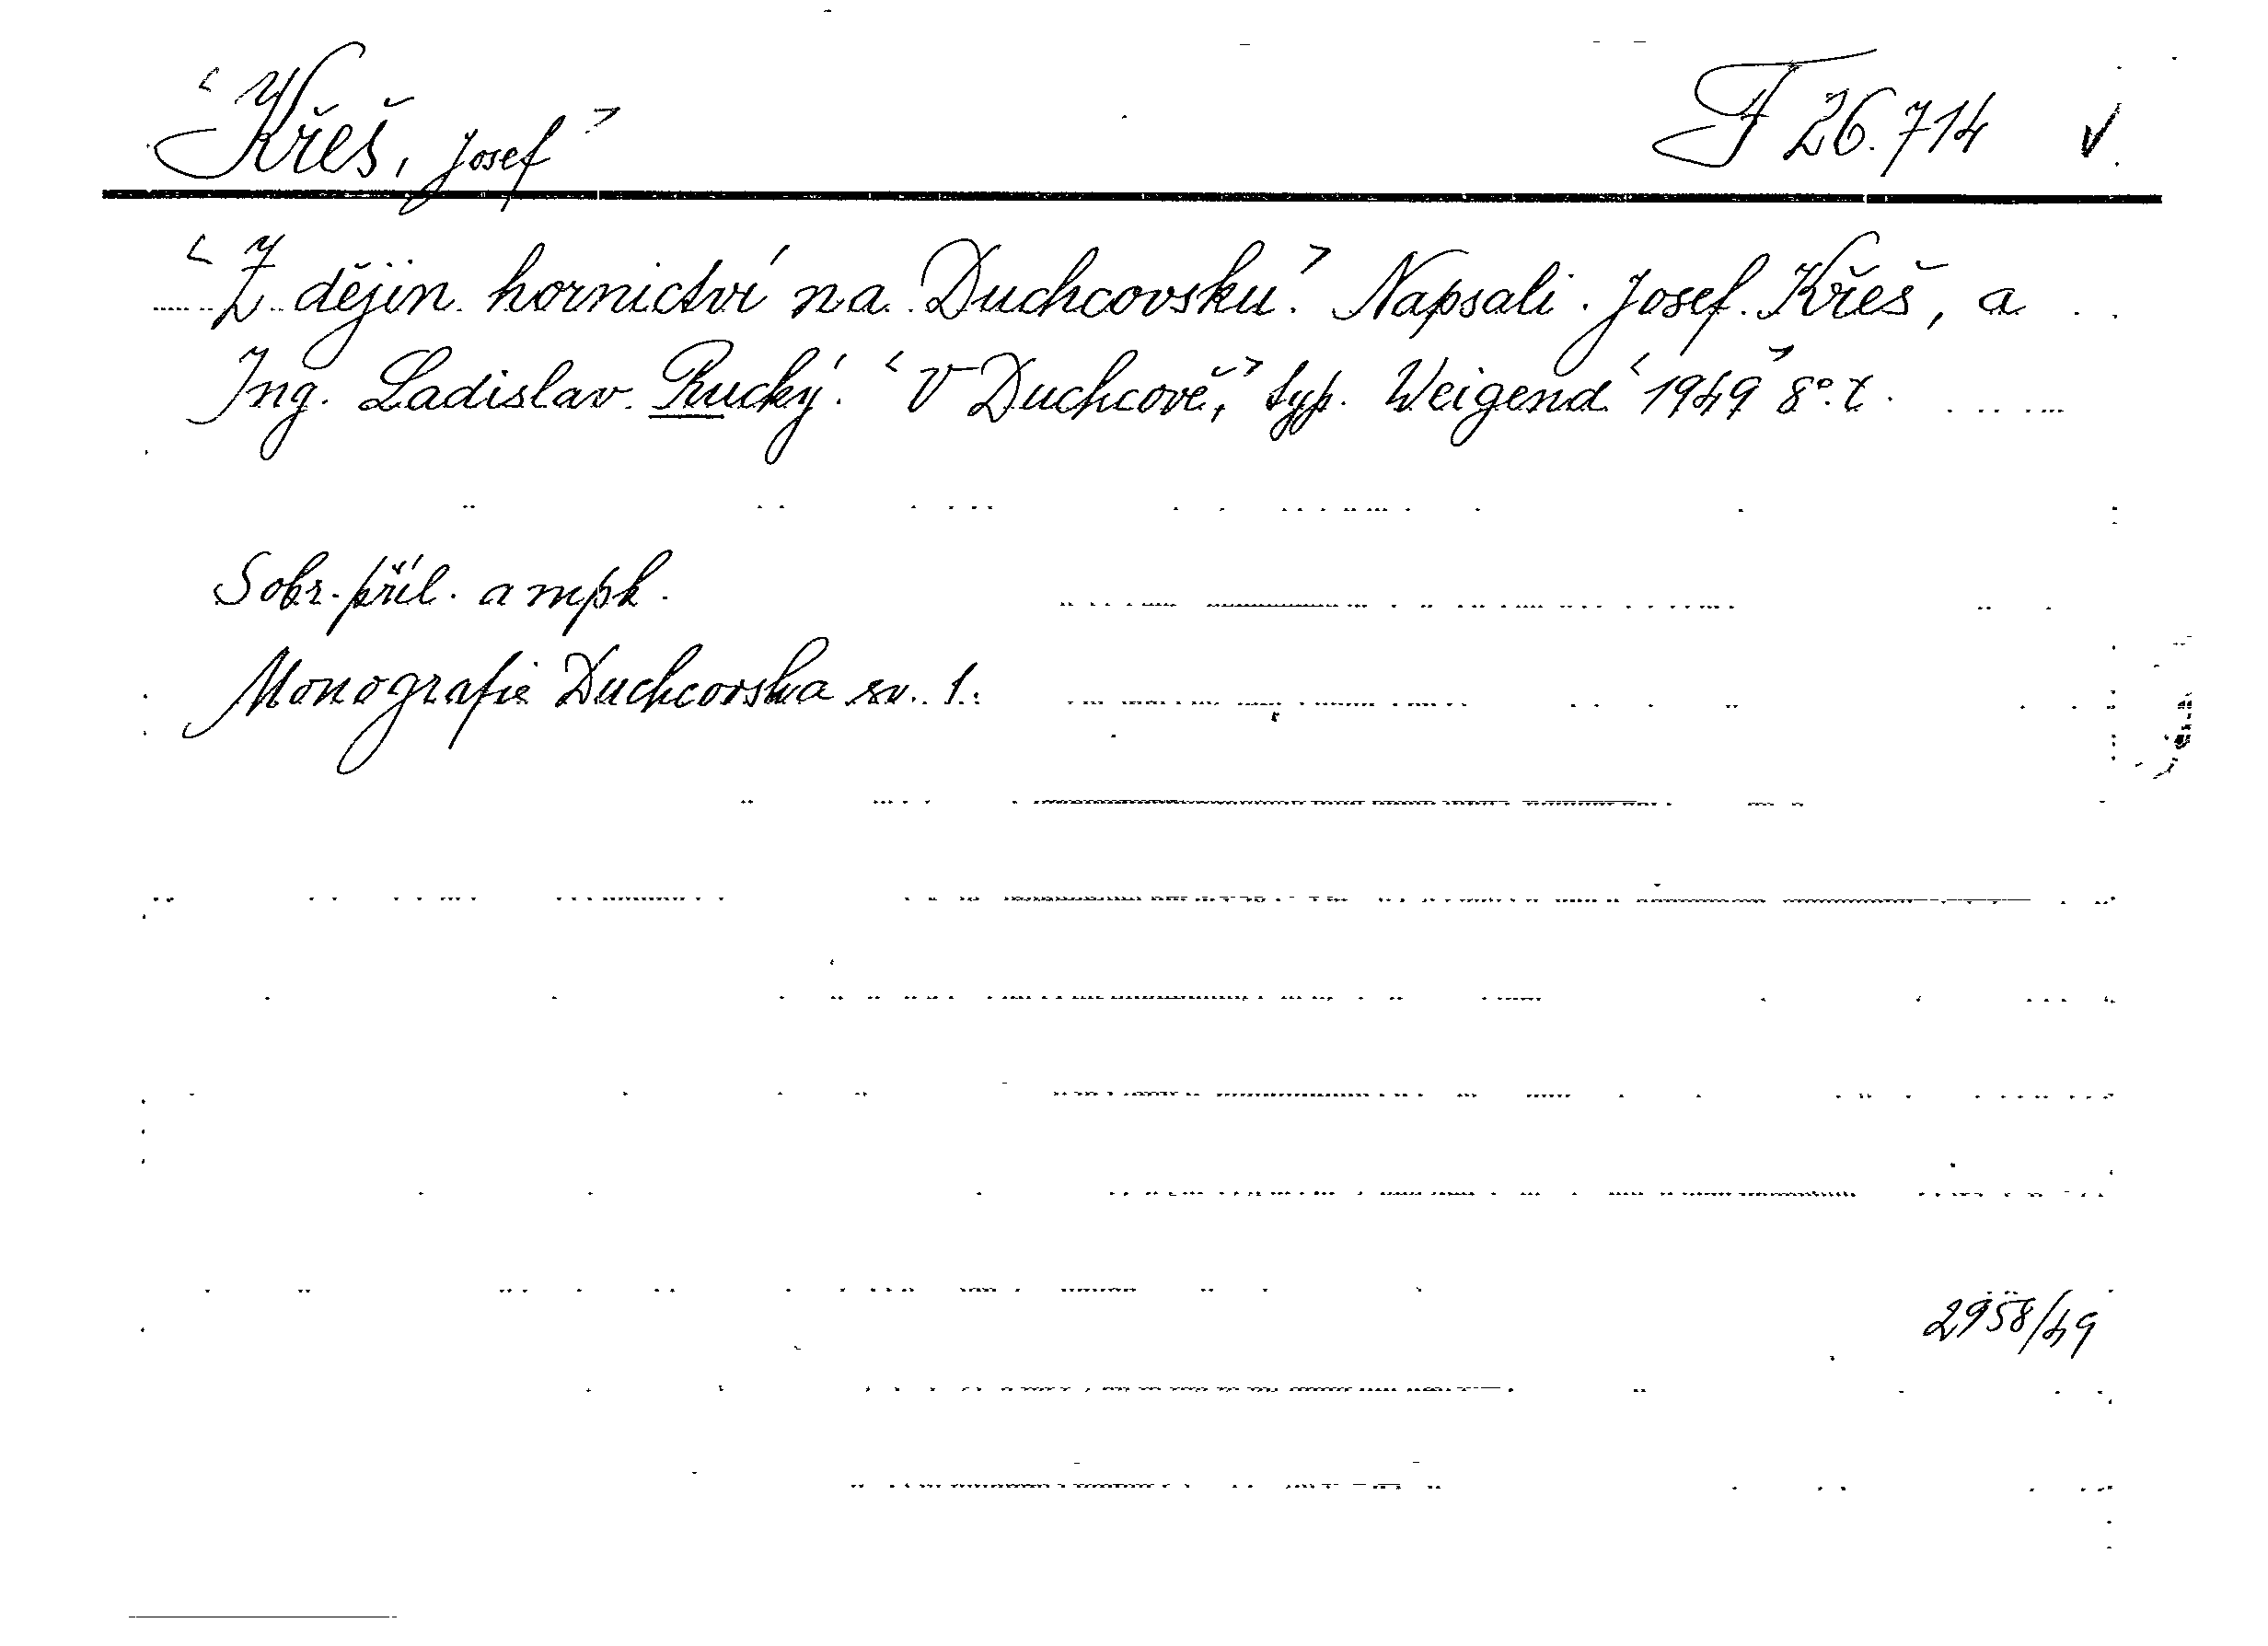 <Křeš, Josef> F 26.714 V
<Z dějin hornictví na Duchcovsku.> Napsali Josef Křeš, a
Ing. Ladislav Rucký. <V Duchcově,> typ. Weigend <1949> 8°.
S obr. příl. a mpk.
Monografie Duchcovska sv. 1.
2958/49